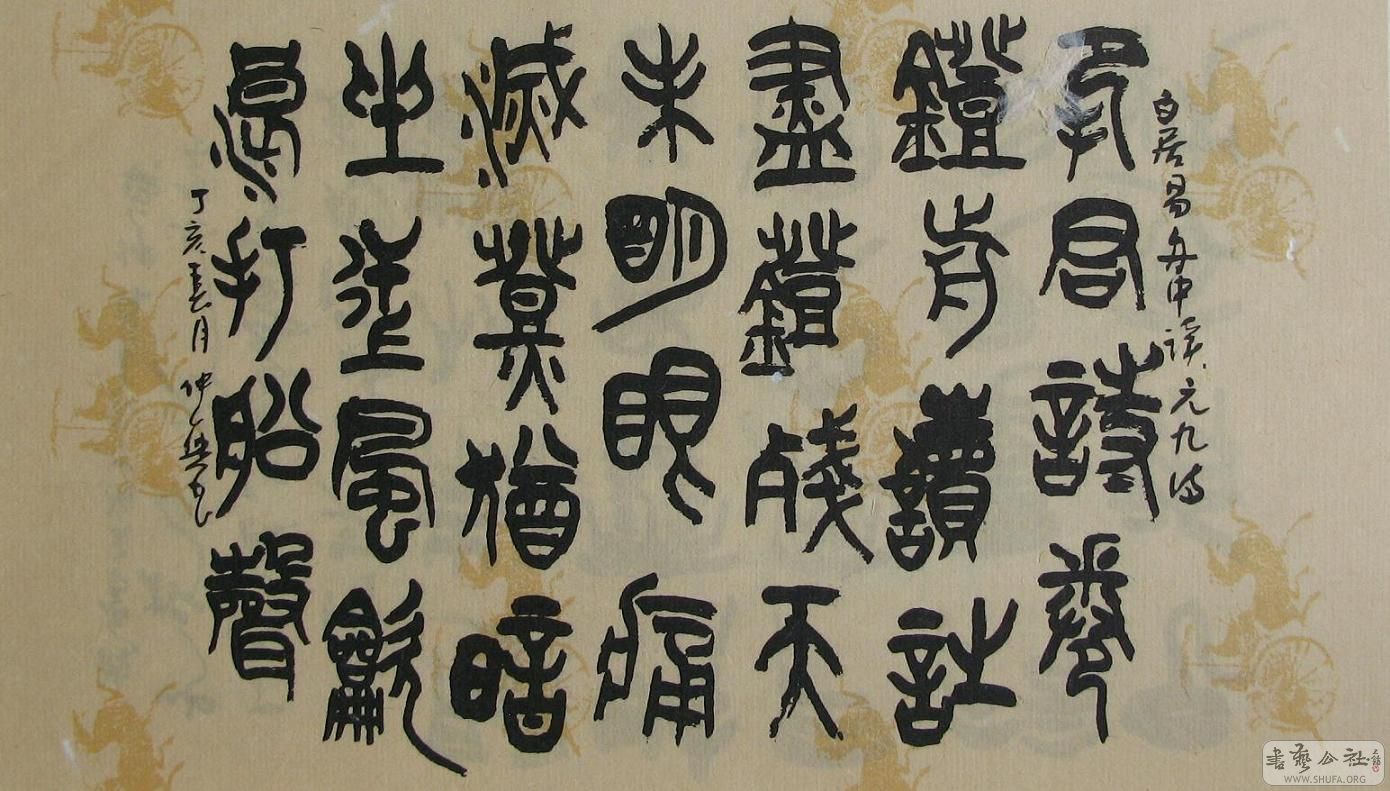 白居易舟中读元九诗
把君詩卷
鐙前讀詩
盡鐙殘天
未明眼痛
滅猶暗
坐逆風龡
浪打船聲
丁亥春月 仲
書藝公社
WWW.SHUFA.ORG